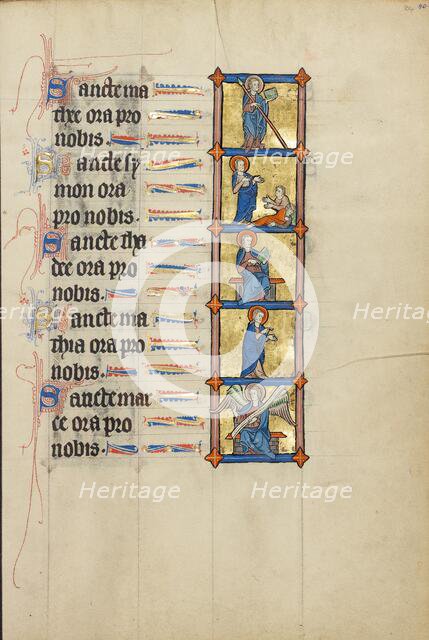 Sancte ma
thee ora pro
nobis.
Sancte sy
mon ora
pro nobis.
Sancte tha
dee ora pro
nobis.
Sancte ma
thia ora pro
nobis.
Sancte mar
ce ora pro
nobis.
Heritage
Heritage
Heritage
Heritage
Heritage
Heritage